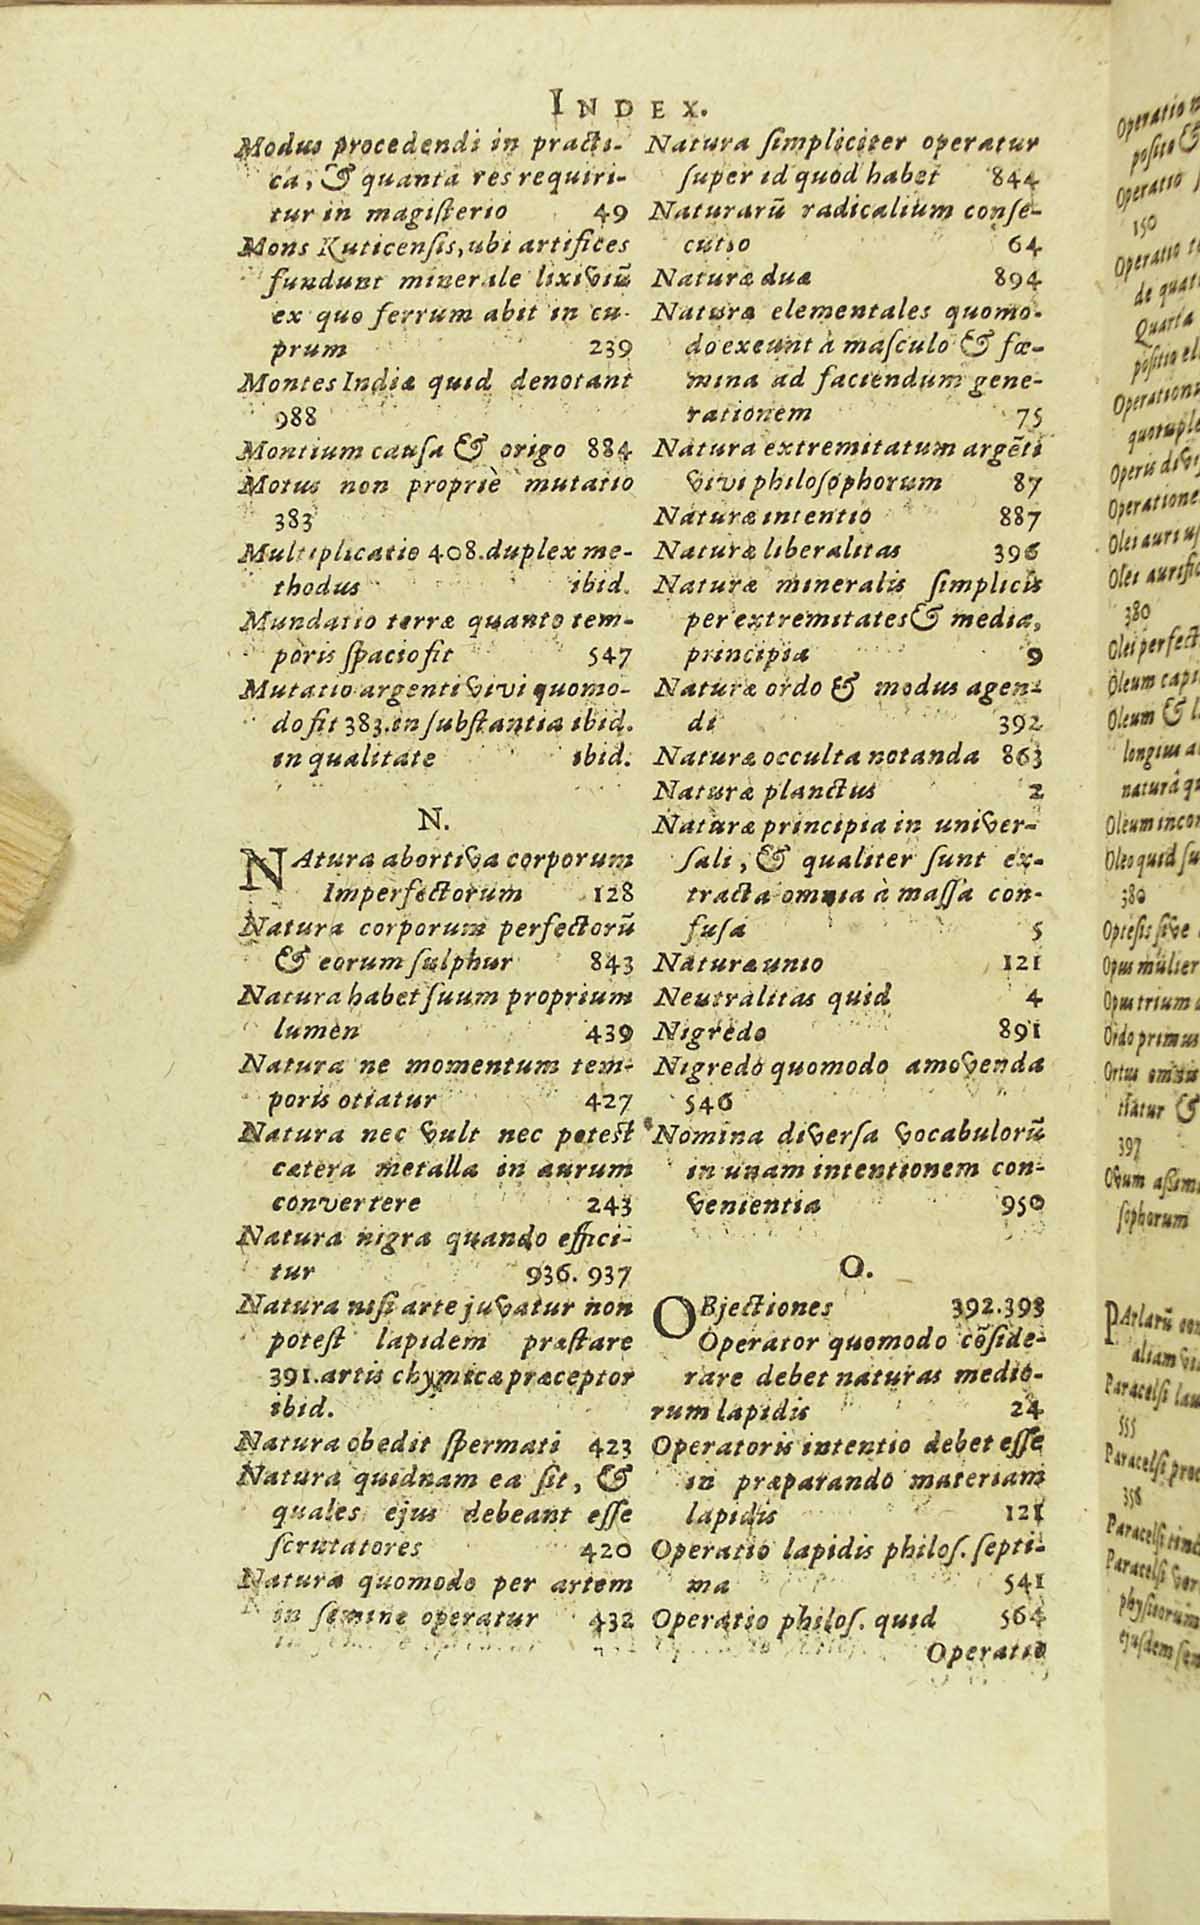 INDEX.
Modus procedendi in practi-
ca, & quanta res requiri-
tur in magisterio 49
Mons Kuticensis, ubi artifices
fundunt minerale lixiviũ
ex quo ferrum abit in cu-
prum 239
Montes Indiæ quid denotant
988
Montium causa & origo 884
Motus non propriè mutatio
383
Multiplicatio 408. duplex me-
thodus ibid.
Mundatio terræ quanto tem-
poris spacio fit 547
Mutatio argenti vivi quomo-
do fit 383. in substantia ibid.
in qualitate ibid.
N.
NAtura abortiva corporum
Imperfectorum 128
Natura corporum perfectorũ
& eorum sulphur 843
Natura habet suum proprium
lumen 439
Natura ne momentum tem-
poris otiatur 427
Natura nec vult nec potest
cætera metalla in aurum
convertere 243
Natura nigra quando effici-
tur 936. 937
Natura nisi arte juvatur non
potest lapidem præstare
391. artis chymicæ præceptor
ibid.
Natura obedit spermati 423
Natura quidnam ea sit, &
quales ejus debeant esse
scrutatores 420
Natura quomodo per artem
in semine operatur 432
Natura simpliciter operatur
super id quod habet 844
Naturarũ radicalium conse-
cutio 64
Naturæ duæ 894
Naturæ elementales quomo-
do exeunt à masculo & fœ-
mina ad faciendum gene-
rationem 75
Natura extremitatum argẽti
vivi philosophorum 87
Naturæ intentio 887
Naturæ liberalitas 396
Naturæ mineralis simplicis
per extremitates & media,
principia 9
Naturæ ordo & modus agen-
di 392
Naturæ occulta notanda 863
Naturæ planctus 2
Naturæ principia in univer-
sali, & qualiter sunt ex-
tracta omnia à massa con-
fusa 5
Naturæ unio 121
Neutralitas quid 4
Nigredo 891
Nigredo quomodo amovenda
546
Nomina diversa vocabulorũ
in unam intentionem con-
venientia 950
O.
OBjectiones 392. 393
Operator quomodo cõside-
rare debet naturas medio-
rum lapidis 24
Operatoris intentio debet esse
in præparando materiam
lapidis 121
Operatio lapidis philos. septi-
ma 541
Operatio philos. quid 564
Operatio
Operatio
posito &
Operatio
150
Operatio
de
Quarta
positio
Operis
Olei auri
Olei
380
Olei
Oleum
Oleum &
longius
naturâ
Oleum
Oleo quid
380
Optesis sive
Opus
Opus trium
Ordo primus
Ortus
&
397
Ovum
sophorum
Paracelsi
555
Paracelsi
358
Paracelsi
Paracelsi
ejusdem